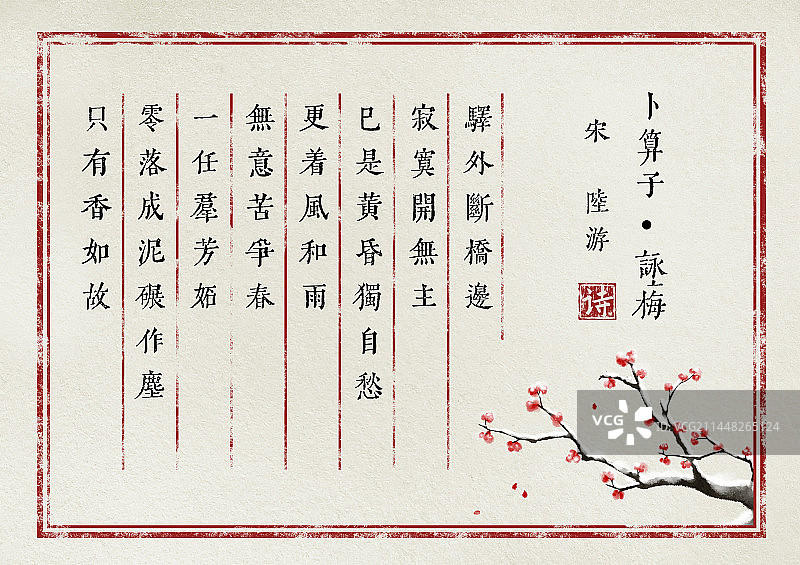 卜算子·詠梅
宋 陸游
诗
驛外斷橋邊
寂寞開無主
已是黃昏獨自愁
更着風和雨
無意苦爭春
一任羣芳妬
零落成泥碾作塵
只有香如故
VCG
VCG211448265124